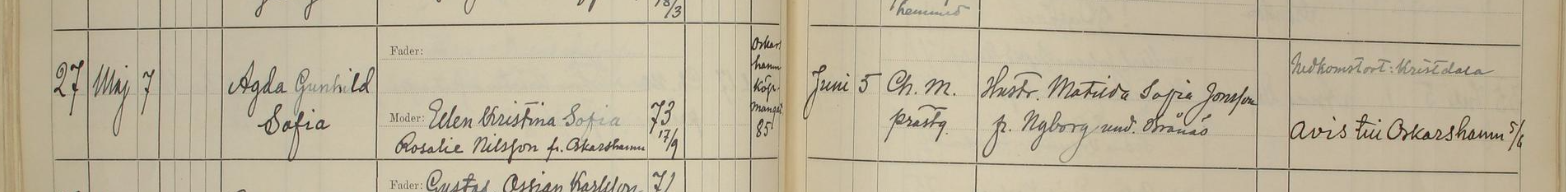 18/3
hemmed
27 Maj 7 Agda Gunhild Sofia
Fader:
Moder: Ellen Kristina Sofia 73
Rosalie Nilsson fr. Oskarshamn 17/9
Oskars
hamn
Köp-
mangat
85
Juni 5 Ch. M.
prästg.
Hustr. Matilda Sofia Jonsson
fr. Nyborg und. Bränås
Nedkomstort: Kristdala
Avis till Oskarshamn 5/6
Fader: Gustaf Ossian Karlsson 71